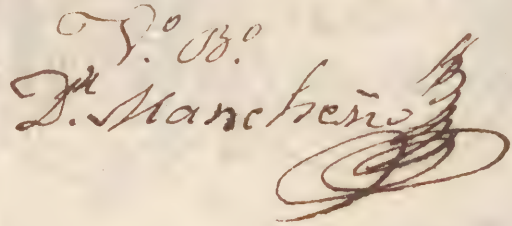 V.º B.º
D.r Mancheño